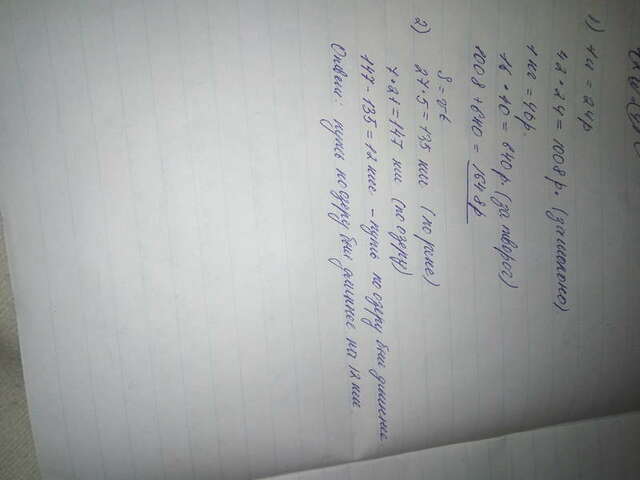 1) 1 л = 24 р
42 * 24 = 1008 р. (за молоко)
1 кг = 40 р.
16 * 40 = 640 р. (за творог)
1008 + 640 = 1648 р
2) S = vt
27 * 5 = 135 км (по реке)
7 * 21 = 147 км (по озеру)
147 - 135 = 12 км - путь по озеру был длиннее
Ответ: путь по озеру был длиннее на 12 км.